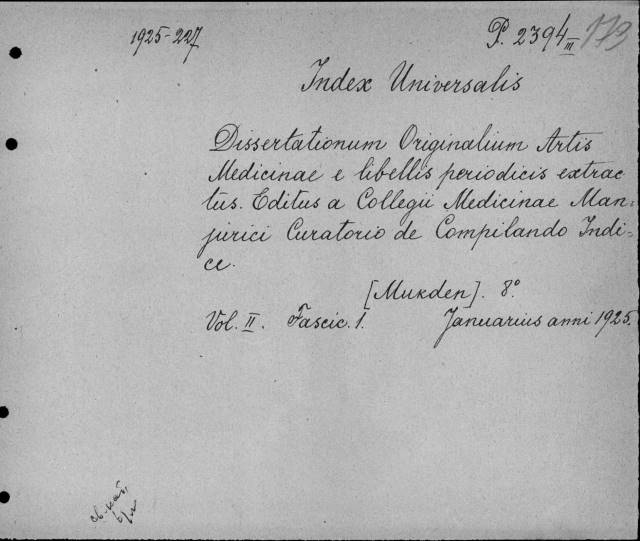 1925-227
P. 2394 III 173
Index Universalis
Dissertationum Originalium Artis
Medicinae e libellis periodicis extrac
tus. Editus a Collegii Medicinae Man-
jurici Curatorio de Compilando Indi-
ce.
[Mukden]. 8°
Vol. II. Fascic. 1. Januarius anni 1925.